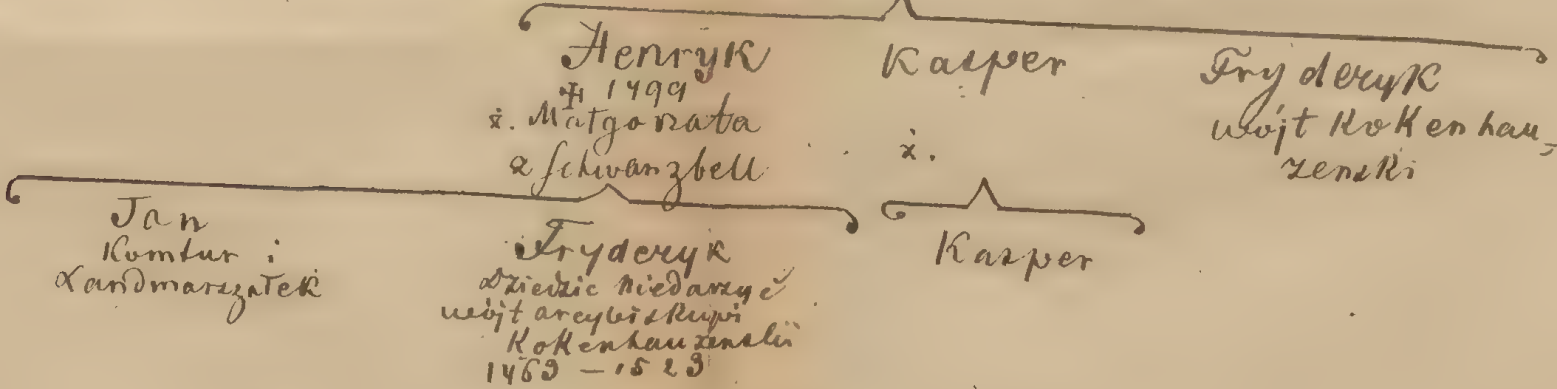 Henryk
✠ 1499
ż. Małgorzata
z Schwanzbell
Kasper
ż.
Fryderyk
wójt Kokenhau-
zenski
Jan
Komtur i
Landmarszałek
Fryderyk
Dziedzic Niedarzyč
wójt arcybiskupi
Kokenhauzenskii
1469 – 1529
Kasper